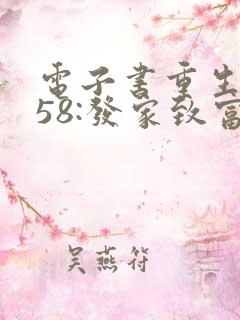 電子書重生
58:發家致富
吳燕符